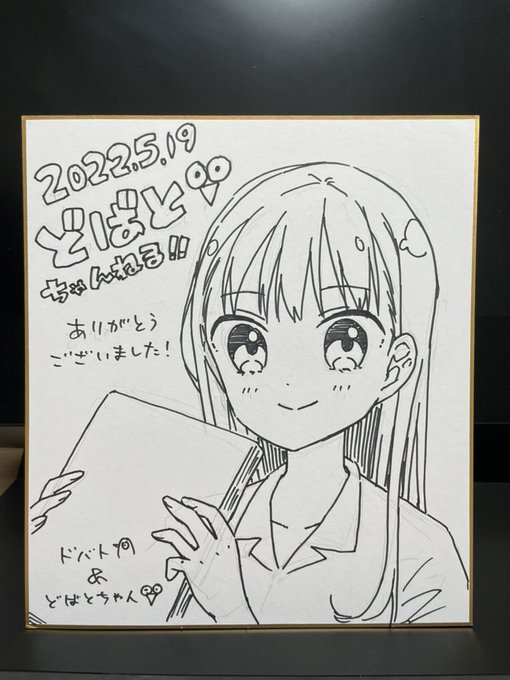 2022.5.19
どばと
ちゃんねる!!
ありがとう
ございました!
ドバト
&
どばとちゃん